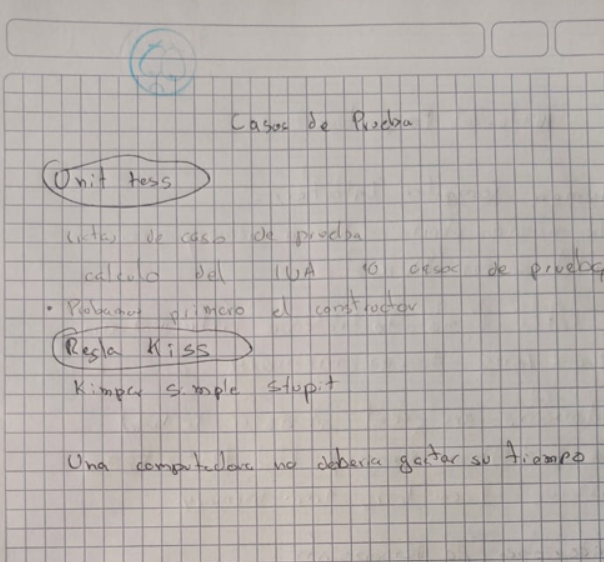 Casos de Prueba
Unit tess
Listas de caso de prueba
calculo del IVA 10 casos de prueba
• Probamos primero el constructor
Regla Kiss
Kimper simple stupit
Una computadora no deberia gastar su tiempo